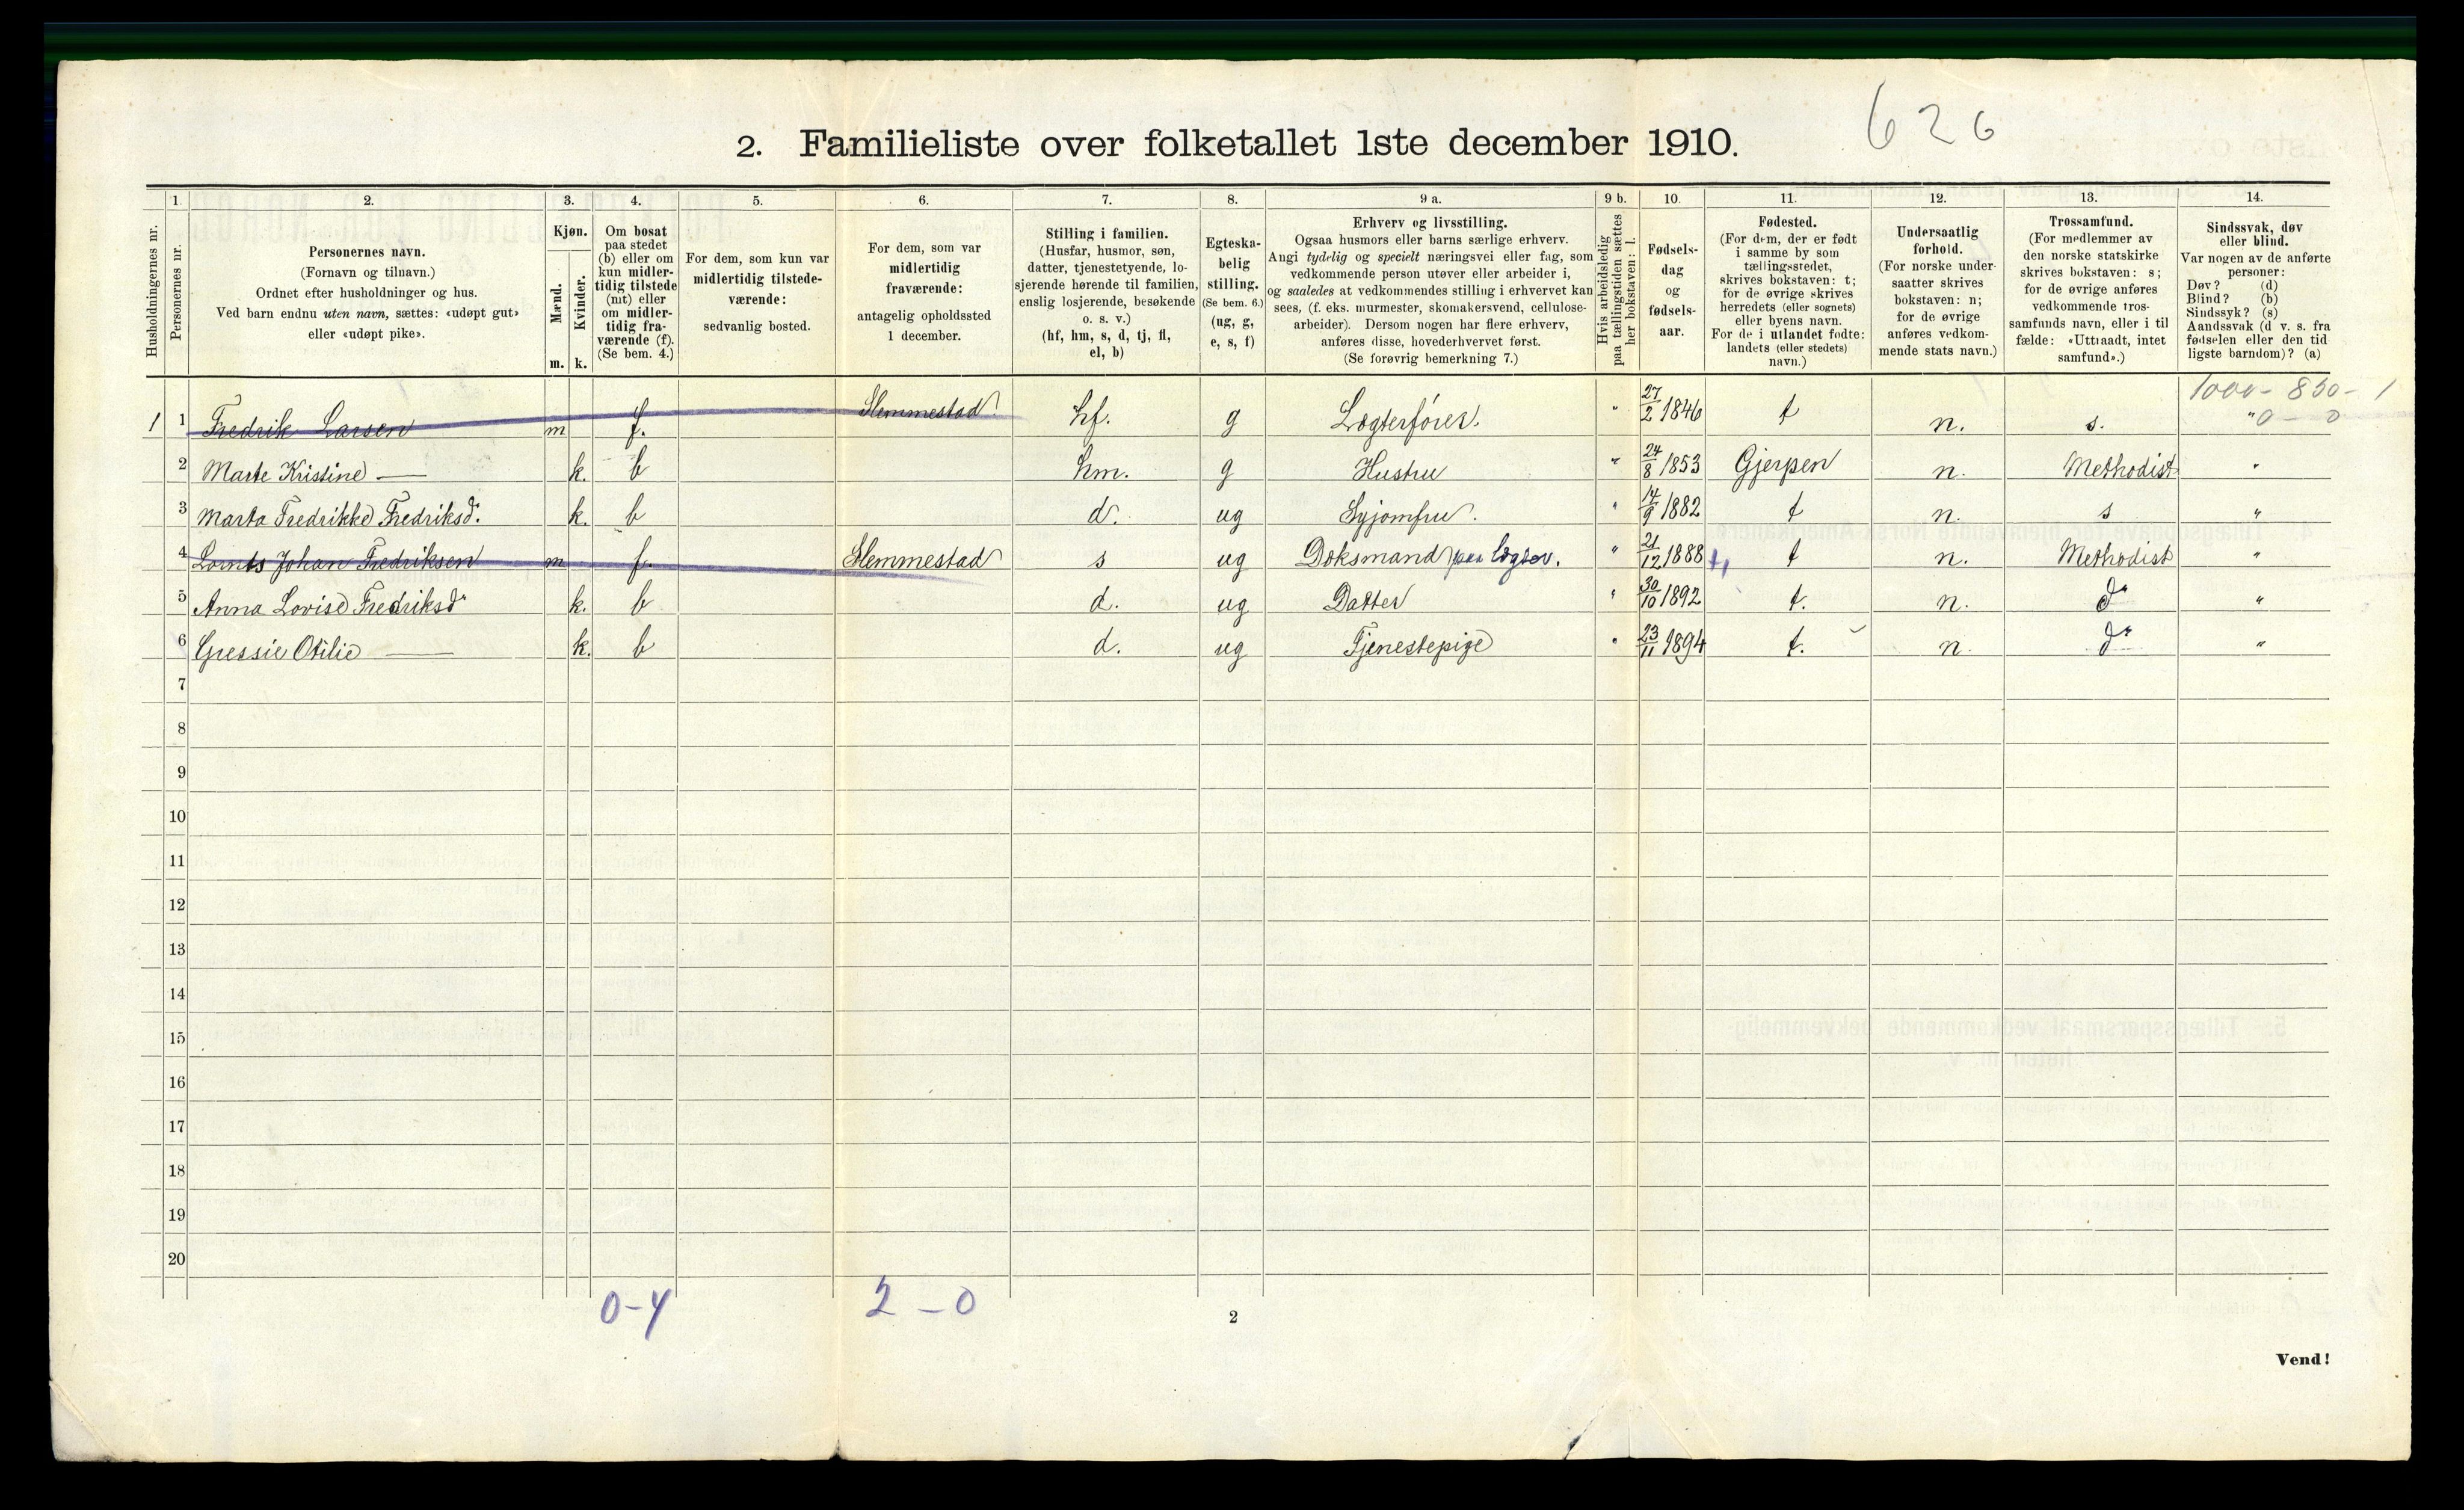 626
2. Familieliste over folketallet 1ste december 1910.
1. 2. 3. 4. 5. 6. 7. 8. 9 a. 9 b. 10. 11. 12. 13. 14.
Husholdningernes nr.
Personernes nr.
Personernes navn.
(Fornavn og tilnavn.)
Ordnet efter husholdninger og hus.
Ved barn endnu uten navn, sættes: «udøpt gut»
eller «udøpt pike».
Kjøn.
Mænd.
Kvinder.
m. k.
Om bosat
paa stedet
(b) eller om
kun midler-
tidig tilstede
(mt) eller
om midler-
tidig fra-
værende (f).
(Se bem. 4.)
For dem, som kun var
midlertidig tilstede-
værende:
sedvanlig bosted.
For dem, som var
midlertidig
fraværende:
antagelig opholdssted
1 december.
Stilling i familien.
(Husfar, husmor, søn,
datter, tjenestetyende, lo-
sjerende hørende til familien,
enslig losjerende, besøkende
o. s. v.)
(hf, hm, s, d, tj, fl,
el, b)
Egteska-
belig
stilling.
(Se bem. 6.)
(ug, g,
e, s, f)
Erhverv og livsstilling.
Ogsaa husmors eller barns særlige erhverv.
Angi tydelig og specielt næringsvei eller fag, som
vedkommende person utøver eller arbeider i,
og saaledes at vedkommendes stilling i erhvervet kan
sees, (f. eks. murmester, skomakersvend, cellulose-
arbeider). Dersom nogen har flere erhverv,
anføres disse, hovederhvervet først.
(Se forøvrig bemerkning 7.)
Hvis arbeidsledig
paa tællingstiden sættes
her bokstaven: l.
Fødsels-
dag
og
fødsels-
aar.
Fødested.
(For dem, der er født
i samme by som
tællingsstedet,
skrives bokstaven: t;
for de øvrige skrives
herredets (eller sognets)
eller byens navn.
For de i utlandet fødte:
landets (eller stedets)
navn.)
Undersaatlig
forhold.
(For norske under-
saatter skrives
bokstaven: n;
for de øvrige
anføres vedkom-
mende stats navn.)
Trossamfund.
(For medlemmer av
den norske statskirke
skrives bokstaven: s;
for de øvrige anføres
vedkommende tros-
samfunds navn, eller i til
fælde: «Uttraadt, intet
samfund».)
Sindssvak, døv
eller blind.
Var nogen av de anførte
personer:
Døv? (d)
Blind? (b)
Sindssyk? (s)
Aandssvak (d v. s. fra
fødselen eller den tid
ligste barndom)? (a)
1000 - 850 - 1
1 1 Fredrik Larsen m f. Slemmestad hf. g Lægterfører. " 27/2 1846 t n. s. " 0 — 0
2 Marte Kristine — k. b hm. g Hustru " 24/8 1853 Gjerpen n. Methodist "
3 Marta Fredrikke Fredriksd. k. b d. ug Syjomfru. " 14/9 1882 t n. s "
4 Lornts Johan Fredriksen m f. Slemmestad s ug Doksmand paa lægter. " 21/12 1888 t n. Methodist "
5 Anna Lovise Fredriksd k. b d. ug Datter " 30/10 1892 t. n. do "
6 Gressie Otilie — k. b d. ug Tjenestepige " 23/11 1894 t. n. do "
7
8
9
10
11
12
13
14
15
16
17
18
19
20
0-4 2-0
2
Vend!